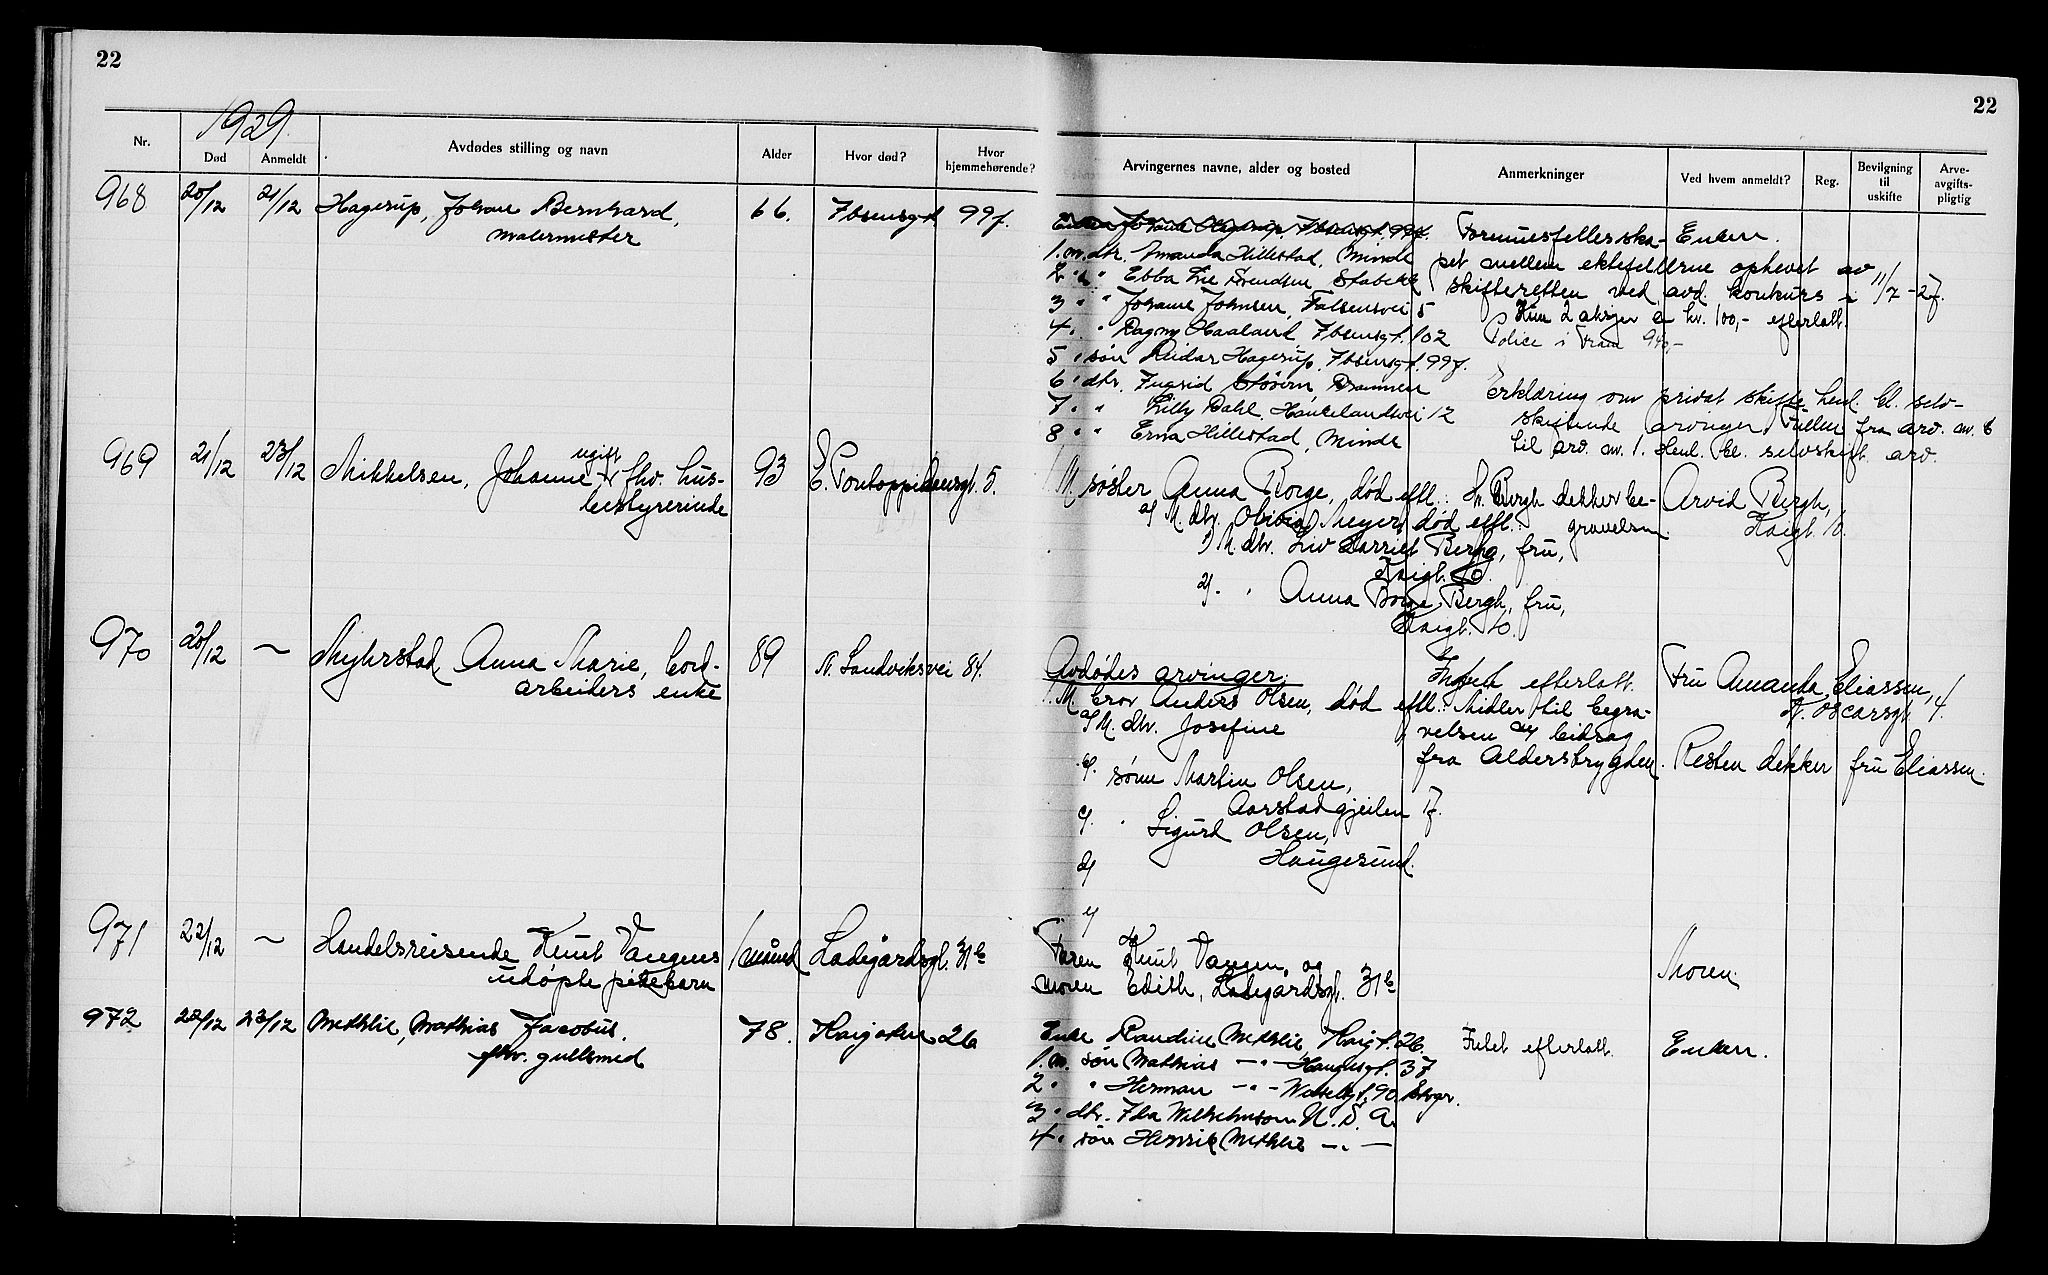 22
22
1929.
Nr.
Død
Anmeldt
Avdødes stilling og navn
Alder
Hvor død?
Hvor hjemmehørende?
Arvingernes navne, alder og bosted
Anmerkninger
Ved hvem anmeldt?
Reg.
Bevilgning til uskifte
Arve-avgifts-pligtig
968 20/12 21/12 Hagerup, Johan Bernhard, 66. Ibsensgt. 99f.
malermester
Enken Johanne Hagerup, Ibsensgt. 99f. Formuesfellesska- Enken.
1. m. dtr. Amanda Hillestad, Minde pet mellem ektefellerne ophevet av
2 " " Ebba Lie Svendsen Stabekk skifteretten ved avd. konkurs i 11/7-27.
3 " " Johanne Johnsen, Falsensvei 5 Kun 2 aksjer a kr. 100,- efterlatt.
4. " Dagny Haaland Ibsensgt. 102 Police i Fram 940,-
5 " søn Reidar Hagerup, Ibsensgt. 99f.
6 " dtr. Ingrid Støren Drammen Erklæring om privat skifte henl. bl. selv-
7. " Lilly Dahl, Haukelandsvei 12 skiftende arvinger. Fullm. fra arv. nr. 6
8 " " Erna Hillestad, Minde til arv. nr. 1. Henl. bl. selvskift. arv.
969 21/12 23/12 Mikkelsen, Johanne ugift fhv. hus- 93 E. Pontoppidansgt. 5.
bestyrerinde
1 M. søster Anna Borge, død eftl.: Hr. Bergh dekker be- Arvid Bergh,
a/ M. dtr. Olivia Meyer, død eftl.: gravelsen. Kaigt. 10.
1) M. dtr. Liv Harriet Bergh, fru,
Kaigt. 10.
2/. " Anna Borge Bergh, fru,
Kaigt. 10.
970 20/12 ~ Myhrstad Anna Marie, bord- 89 N. Sandviksvei 84.
arbeiders enke
Avdødes arvinger: Intet efterlatt. Fru Amanda Eliassen,
1. M. bror Anders Olsen, død eftl.: Midler til begra- N. Oscarsgt. 4.
a/ M. dtr. Josefine velsen av bidrag
fra Alderstrygden. Resten dekker fru Eliassen.
b/. sønn Martin Olsen,
Aarstadgjeilen 17.
c/. " Sigurd Olsen,
Haugesund.
d/
e/
971 22/12 ~ Handelsreisende Knut Vangens 1 måned Ladegårdsgt. 31b
udøpte pikebarn
Faren Knut Vangen, og Moren.
moren Edith, Ladegårdsgt. 31b
972 22/12 23/12 Methlie, Mathias Jacobus. 78. Kaigaten 26
fhv. gullsmed
Enke Randine Methlie Kaigt. 26. Intet efterlatt. Enken.
1. m. søn Mathias —"— Haugesgt. 37
2 " " Herman —"— Wesselsgt. 90
3 " dtr. Ida Wilhelmson U. S. A.
4 " søn Henrik Methlie —"—